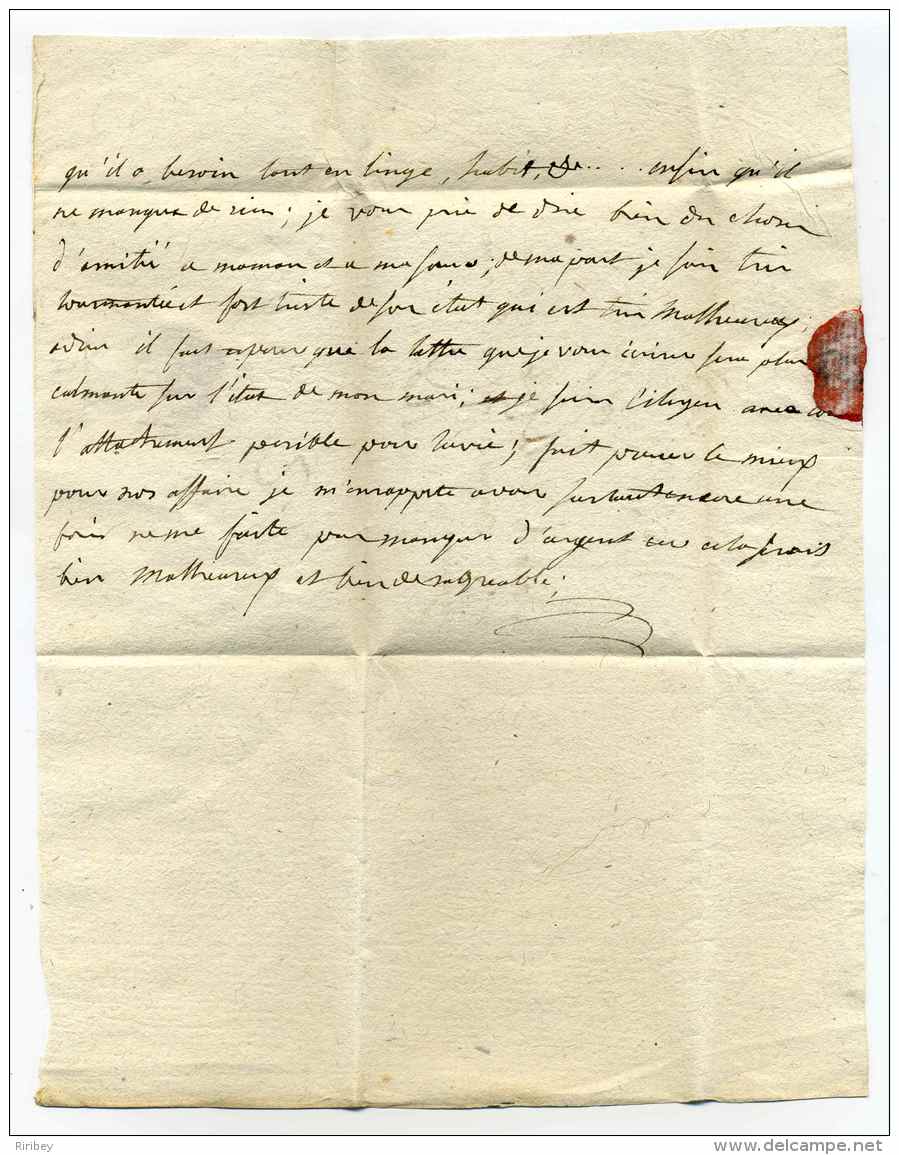 qu'il a besoin tant en linge, habit, &..... enfin qu'il
ne manque de rien; je vous prie de dire bien des choses
d'amitié a maman et a ma soeur; de ma part je suis très
tourmantée et fort triste de son état qui est très malheureux;
adieu il faut esperer que la lettre que je vous écrirer sera plus
calmante sur l'état de mon mari; je suis citoyen avec
l'attachement posible pour la vie; fait pour le mieux
pour nos affaire je m'en rapporte a vous surtout encore une
fois ne me faite pas manquer d'argent cela serait
bien malheureux et bien desagreable;
Riribey
www.delcampe.net